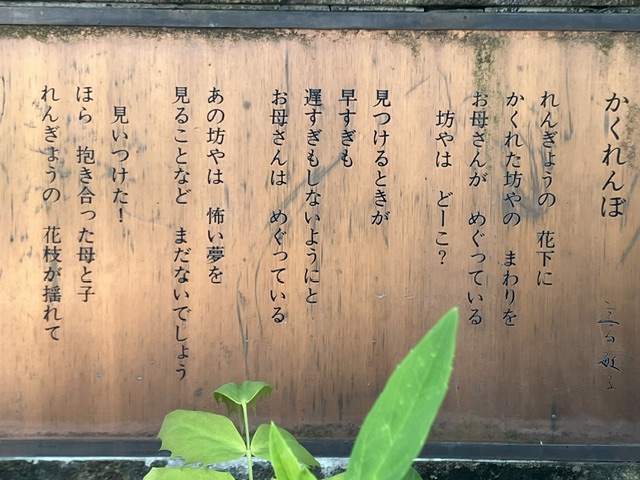 かくれんぼ
れんぎょうの　花下に
かくれた坊やの　まわりを
お母さんが　めぐっている
坊やは　どーこ？
見つけるときが
早すぎも
遅すぎもしないようにと
お母さんは　めぐっている
あの坊やは　怖い夢を
見ることなど　まだないでしょう
見いつけた！
ほら　抱き合った母と子
れんぎょうの　花枝が揺れて